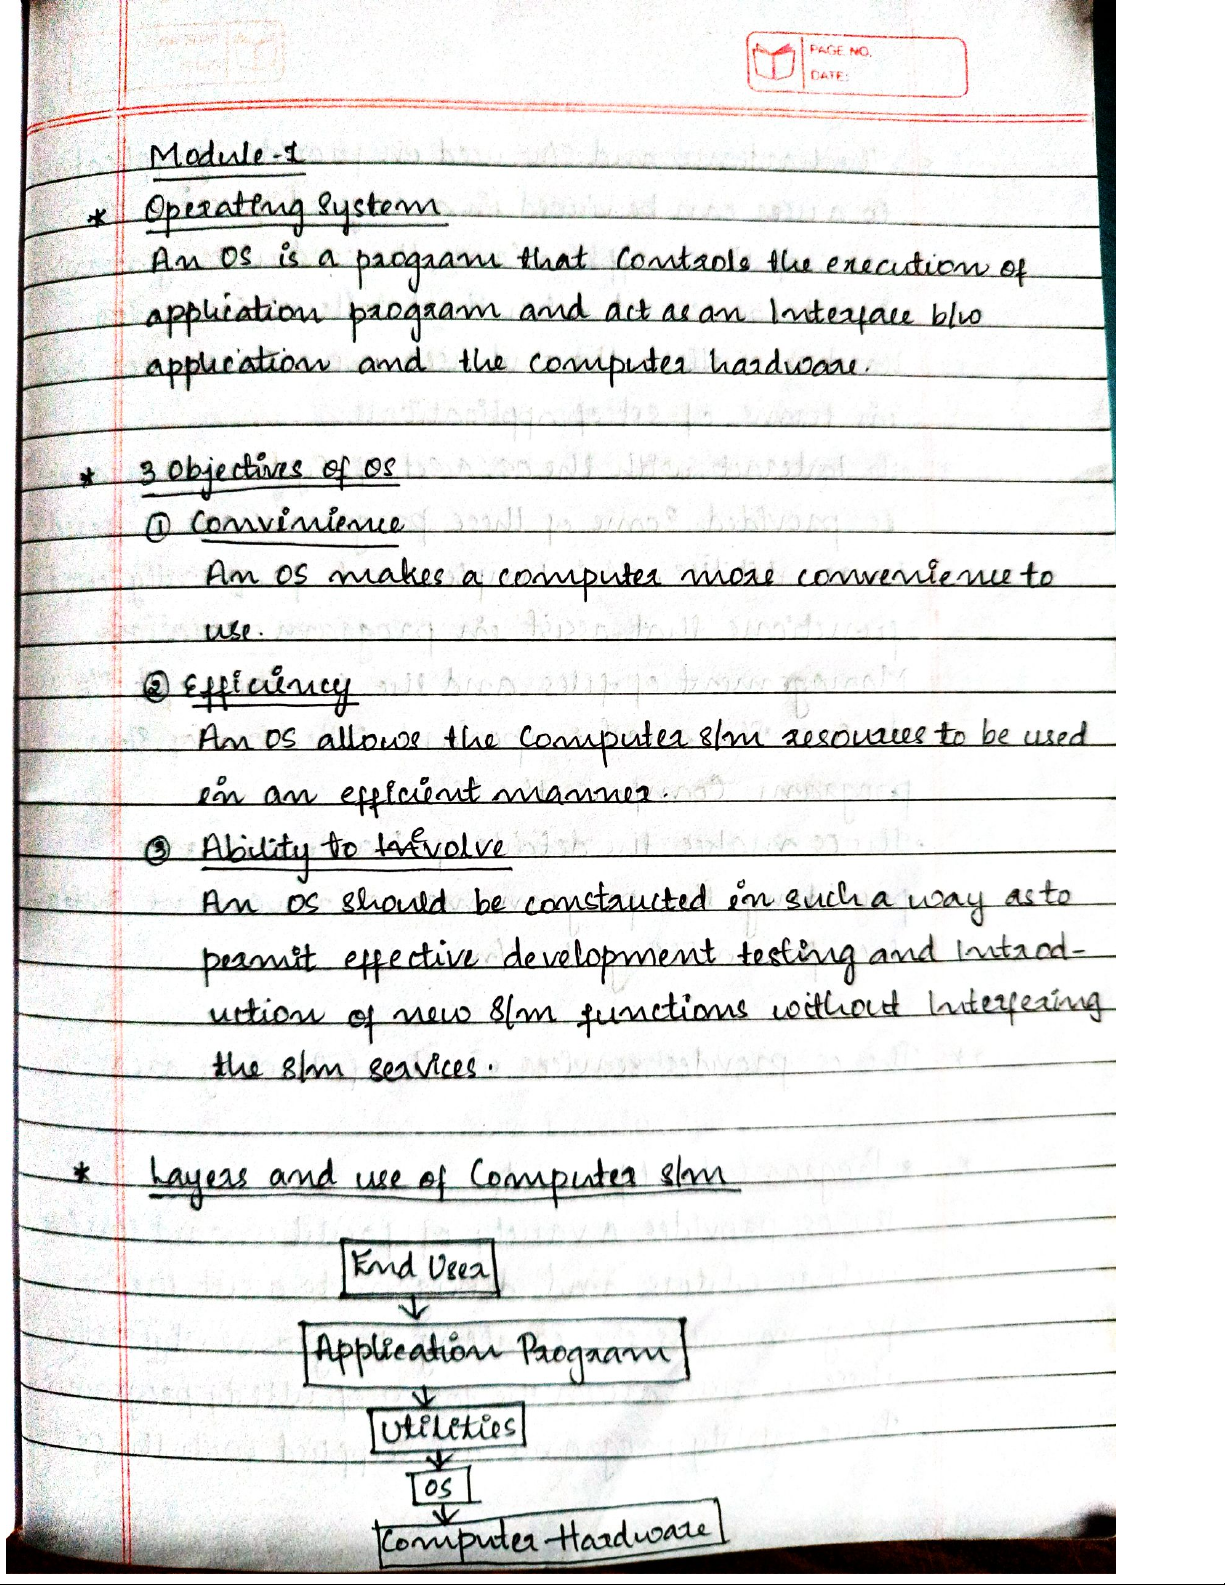 PAGE NO.
DATE:
Module-1
* Operating System
An OS is a program that controls the execution of
application program and act as an Interface b/w
application and the computer hardware.
* 3 Objectives of OS
① Convinience
An OS makes a computer more convenience to
use.
② Efficiency
An OS allows the computer s/m resources to be used
in an efficient manner.
③ Ability to Evolve
An OS should be constructed in such a way as to
permit effective development testing and Introd-
uction of new s/m functions without Interfering
the s/m services.
* Layers and use of Computer s/m
End User
Application Program
Utilities
OS
Computer Hardware